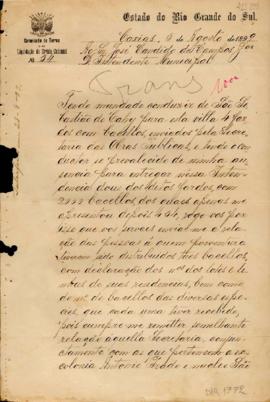 Estado do Rio Grande do Sul.
Commissão de Terras
Liquidação da Divida Colonial
Caxias, 5 de Agosto de 1892
Ao Sr. José Candido de Campos Jor
D. Intendente Municipal
Trans
Tendo mandado conduzir de São Se-
bastião do Cahy para esta villa 4 far-
dos com bacellos enviados pela Secre-
taria das Obras Publicas, e tendo o con-
ductor se prevalecido de minha au-
sencia para entregar nessa Inten-
dencia dous dos ditos fardos, com
bacellos dos quaes apenas me
apresentou depois 446, rogo vos di-
gneis que vos sirvaes enviar-me a re-
lação das pessoas á quem porventura
tenham sido distribuidos tres bacellos,
com declaração dos nos dos lotes e le-
guas de suas residencias, bem como
do no de bacellos das diversas espe-
cies, que cada uma tiver recebido,
pois cumpre-me remetter semelhante
relação áquella Secretaria, conjun-
ctamente com as que pertencem a ex-
colonia Antonio Prado e nucleo São